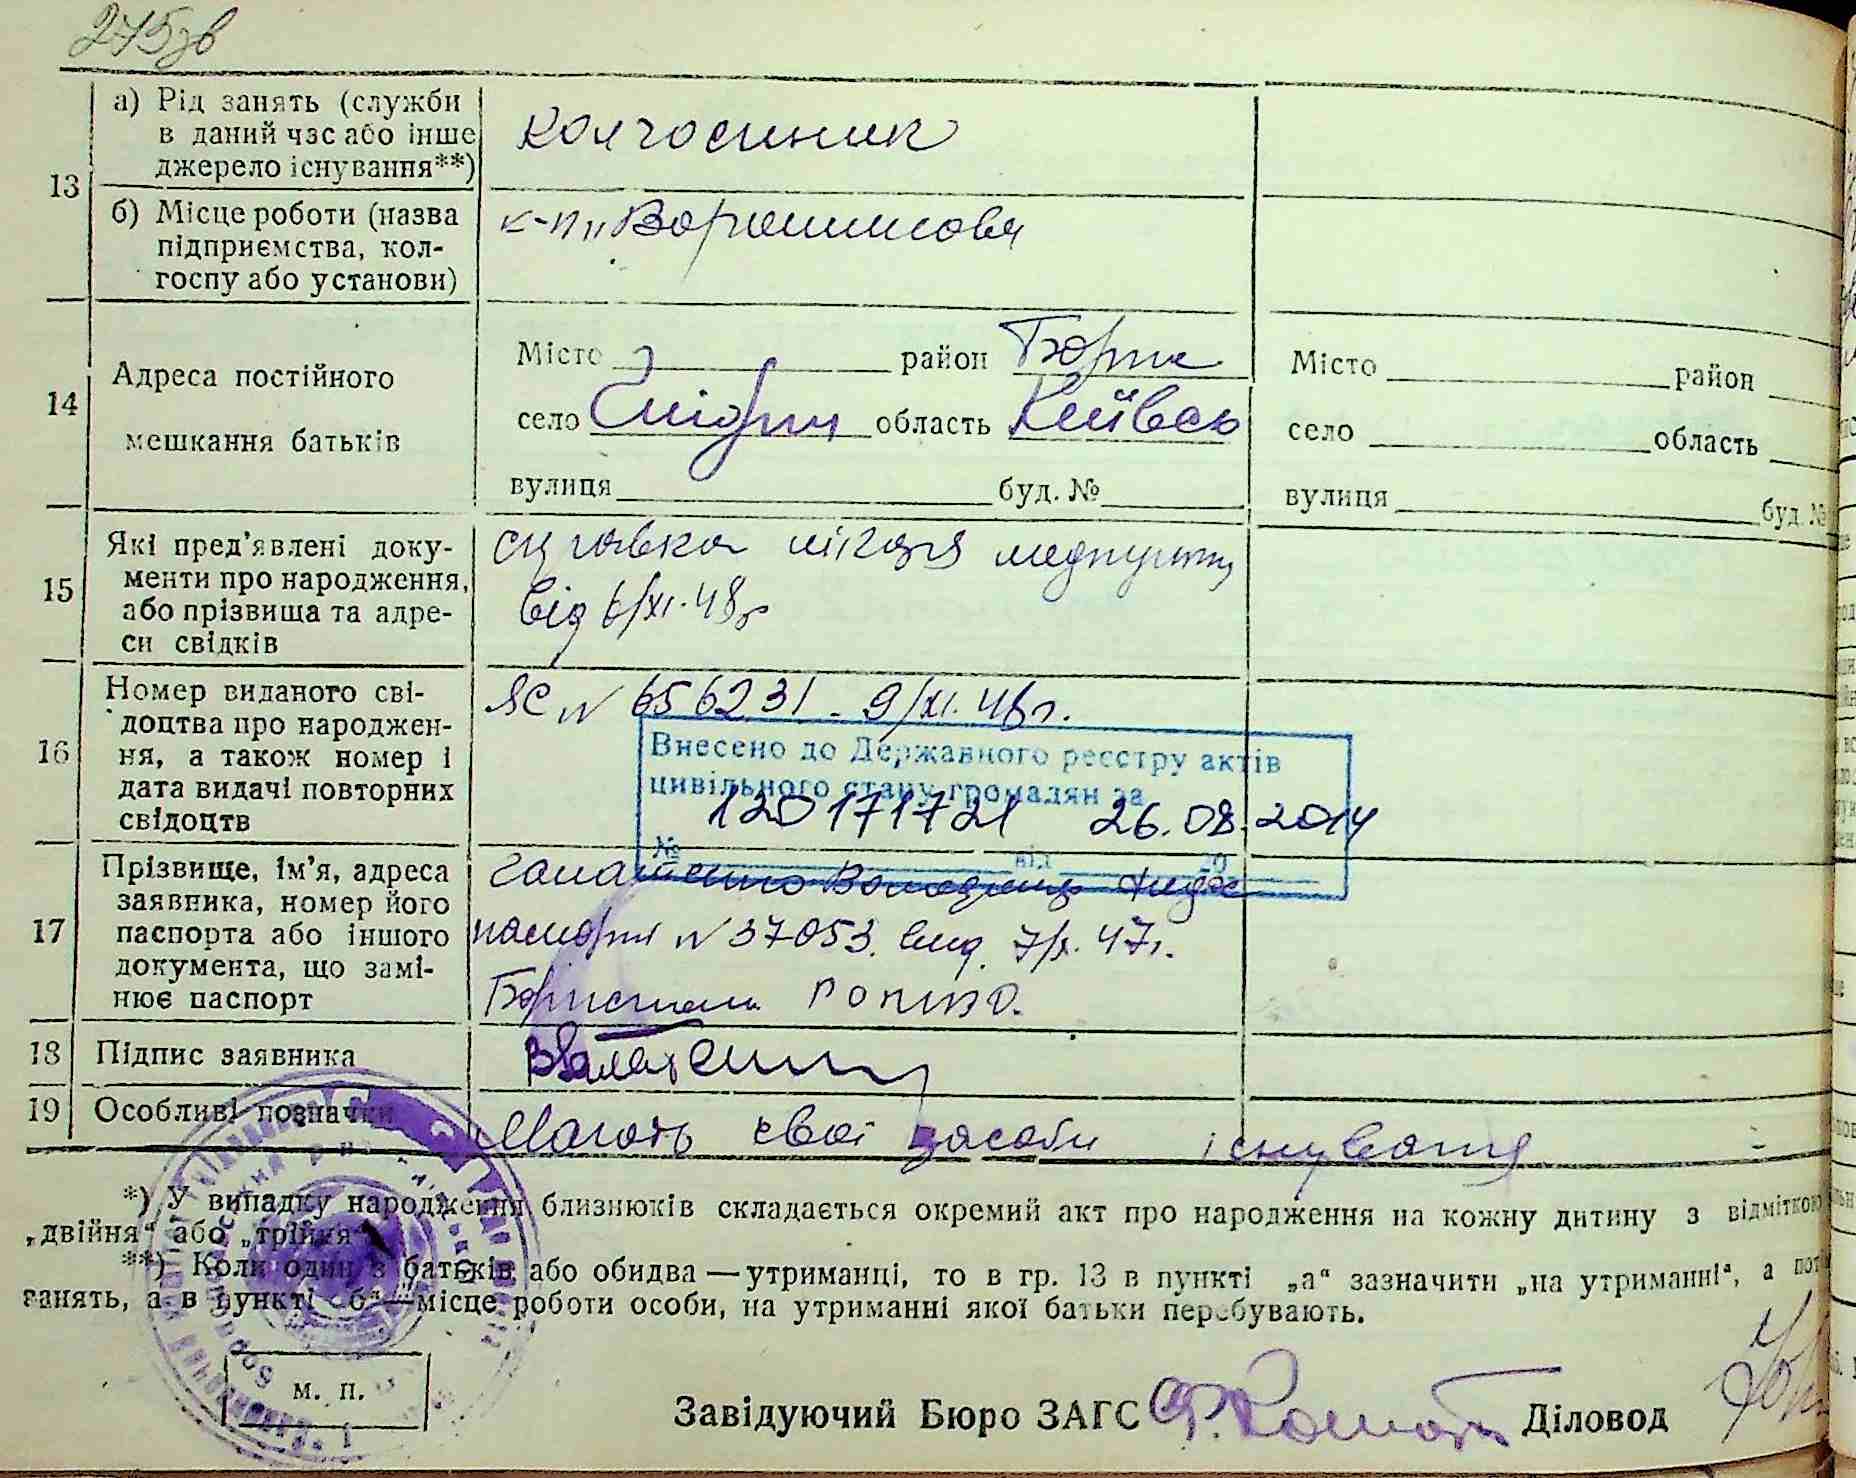 275зв
13
а) Рід занять (служби
в даний час або інше
джерело існування**)
колгоспник
б) Місце роботи (назва
підприємства, кол-
госпу або установи)
к-п „Ворошилова
14
Адреса постійного
мешкання батьків
Місто район Борис
село область Київсь
вулиця буд. №
Місто район
село область
вулиця буд. №
15
Які пред’явлені доку-
менти про народження,
або прізвища та адре-
си свідків
справка лікаря медпункту
від 6/XI.48р
16
Номер виданого сві-
доцтва про народжен-
ня, а також номер і
дата видачі повторних
свідоцтв
ЯС № 656231 - 9/XI.48р.
Внесено до Державного реєстру актів
цивільного стану громадян за
120171721 26.08.2014
№ від 20
17
Прізвище, ім’я, адреса
заявника, номер його
паспорта або іншого
документа, що замі-
нює паспорт
паспорт № 37053. вид. 7/X.47р.
18
Підпис заявника
19
Особливі позначки
Мають свої засоби існування
*) У випадку народження близнюків складається окремий акт про народження на кожну дитину з відміткою
„двійня“ або „трійня“
**) Коли один з батьків або обидва — утриманці, то в гр. 13 в пункті „а“ зазначити „на утриманні“, а пот
занять, а в пункті „б“ — місце роботи особи, на утриманні якої батьки перебувають.
м. п.
Завідуючий Бюро ЗАГС Діловод